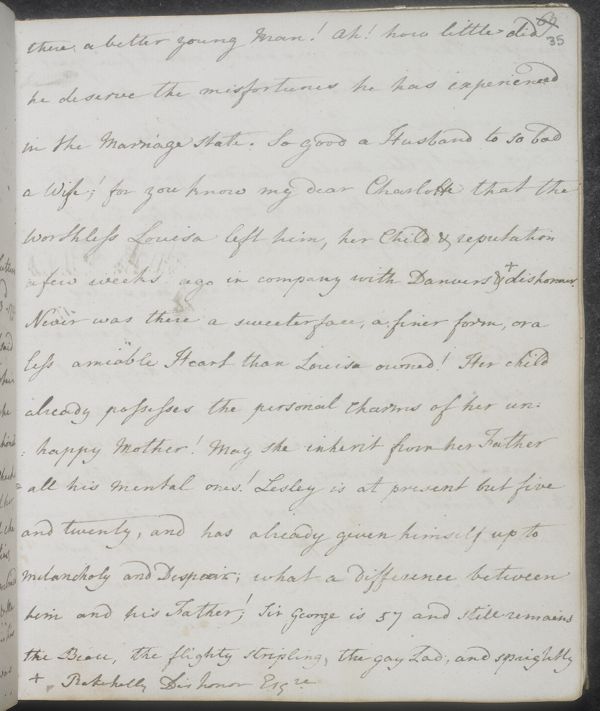 35
there a better young Man! Ah! how little did
he deserve the misfortunes he has experienced
in the Marriage state. So good a Husband to so bad
a Wife; for you know my dear Charlotte that the
Worthless Louisa left him, her Child & reputation
a few weeks ago in company with Danvers & + dishonour
Never was there a sweeter face, a finer form, or a
less amiable Heart than Louisa owned! Her child
already possesses the personal Charms of her un:
:happy Mother! May she inherit from her Father
all his mental ones! Lesley is at present but five
and twenty, and has already given himself up to
melancholy and Despair; what a difference between
him and his Father! Sir George is 57 and still remains
the Beau, the flighty stripling, the gay Lad, and sprightly
+ Rakehelly Dishonor Esqre